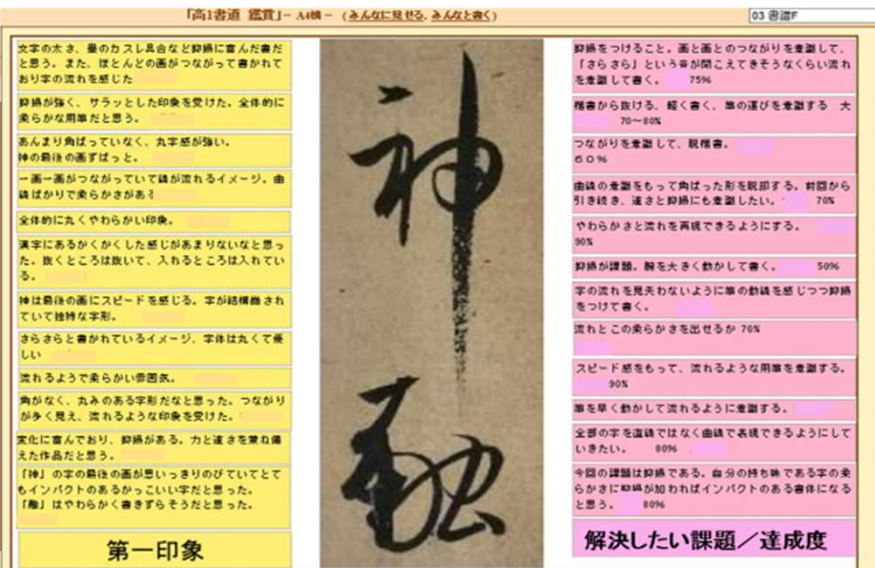 「高1書道 鑑賞」− A4横 − (みんなに見せる、みんなと書く)
03 書譜F
文字の太さ、墨のカスレ具合など抑揚に富んだ書だ
と思う。また、ほとんどの画がつながって書かれて
おり字の流れを感じた
抑揚が強く、サラッとした印象を受けた。全体的に
柔らかな用筆だと思う。
あんまり角ばっていなく、丸字感が強い。
神の最後の画ずばっと。
一画一画がつながっていて線が流れるイメージ。曲
線ばかりで柔らかさがある
全体的に丸くやわらかい印象。
漢字にあるかくかくした感じがあまりないなと思っ
た。抜くところは抜いて、入れるところは入れてい
る。
神は最後の画にスピードを感じる。字が結構崩され
ていて独特な字形。
さらさらと書かれているイメージ、字体は丸くて優
しい
流れるようで柔らかい雰囲気。
角がなく、丸みのある字形だなと思った。つながり
が多く見え、流れるような印象を受けた。
変化に富んでおり、抑揚がある。力と速さを兼ね備
えた作品だと思う。
「神」の字の最後の画が思いっきりのびていてとて
もインパクトのあるかっこいい字だと思った。
「融」はやわらかく書きずらそうだと思った。
第一印象
神
融
抑揚をつけること。画と画とのつながりを意識して、
「さらさら」という音が聞こえてきそうなくらい流れ
を意識して書く。 75%
楷書から抜ける、軽く書く、筆の運びを意識する 大
70〜80%
つながりを意識して、脱楷書。
60%
曲線の意識をもって角ばった形を脱却する。前回から
引き続き、速さと抑揚にも意識したい。 70%
やわらかさと流れを再現できるようにする。
90%
抑揚が課題。腕を大きく動かして書く。 50%
字の流れを見失わないように筆の動線を感じつつ抑揚
をつけて書く。
流れとこの柔らかさを出せるか 70%
スピード感をもって、流れるような用筆を意識する。
90%
筆を早く動かして流れるように意識する。
全部の字を直線ではなく曲線で表現できるようにして
いきたい。 80%
今回の課題は抑揚である。自分の持ち味である字の柔
らかさに抑揚が加わればインパクトのある書体になる
と思う。 80%
解決したい課題／達成度